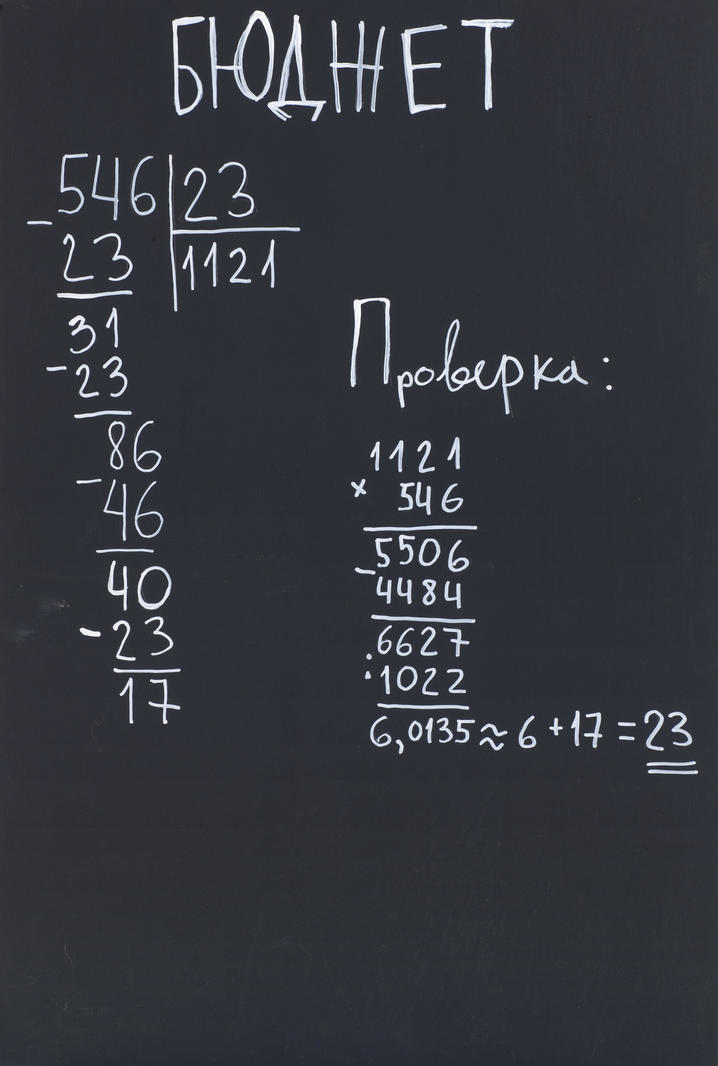 БЮДЖЕТ
546 23
- 23 1121
31
- 23
86
- 46
40
- 23
17
Проверка:
1121
× 546
5506
- 4484
6627
: 1022
6,0135 ≈ 6 + 17 = 23